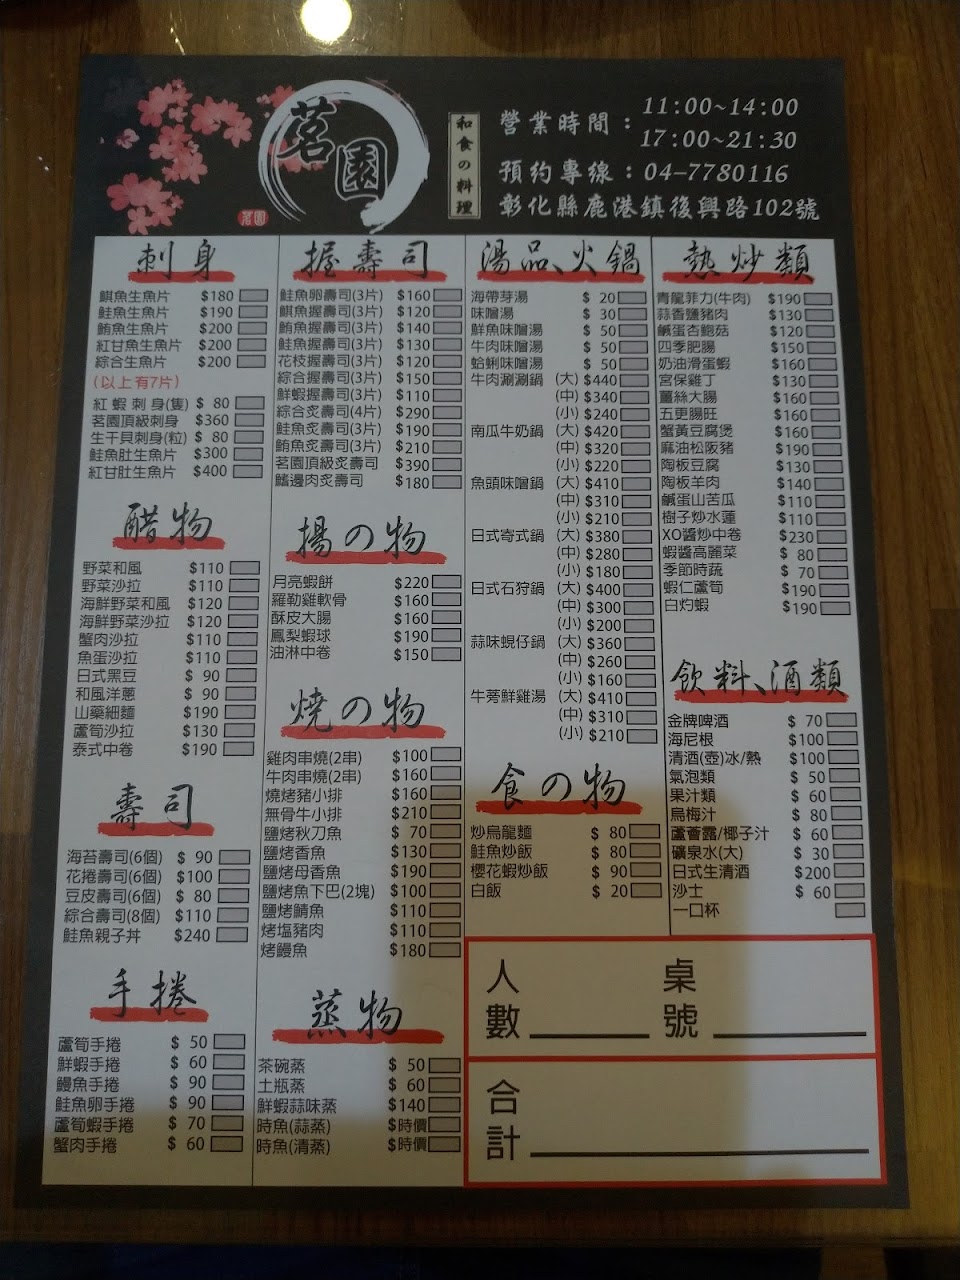 茗園
茗園
和食の料理
營業時間：11:00~14:00
17:00~21:30
預約專線：04-7780116
彰化縣鹿港鎮復興路102號
刺身
鯕魚生魚片 $180
鮭魚生魚片 $190
鮪魚生魚片 $200
紅甘魚生魚片 $200
綜合生魚片 $200
(以上有7片)
紅蝦刺身(隻) $ 80
茗園頂級刺身 $360
生干貝刺身(粒) $ 80
鮭魚肚生魚片 $300
紅甘肚生魚片 $400
醋物
野菜和風 $110
野菜沙拉 $110
海鮮野菜和風 $120
海鮮野菜沙拉 $120
蟹肉沙拉 $110
魚蛋沙拉 $110
日式黑豆 $ 90
和風洋蔥 $ 90
山藥細麵 $190
蘆筍沙拉 $130
泰式中卷 $190
壽司
海苔壽司(6個) $ 90
花捲壽司(6個) $100
豆皮壽司(6個) $ 80
綜合壽司(8個) $110
鮭魚親子丼 $240
手捲
蘆筍手捲 $ 50
鮮蝦手捲 $ 60
鰻魚手捲 $ 90
鮭魚卵手捲 $ 90
蘆筍蝦手捲 $ 70
蟹肉手捲 $ 60
握壽司
鮭魚卵壽司(3片) $160
鯕魚握壽司(3片) $120
鮪魚握壽司(3片) $140
鮭魚握壽司(3片) $130
花枝握壽司(3片) $120
綜合握壽司(3片) $150
鮮蝦握壽司(3片) $110
綜合炙壽司(4片) $290
鮭魚炙壽司(3片) $190
鮪魚炙壽司(3片) $210
茗園頂級炙壽司 $390
鰭邊肉炙壽司 $180
揚の物
月亮蝦餅 $220
羅勒雞軟骨 $160
酥皮大腸 $160
鳳梨蝦球 $190
油淋中卷 $150
燒の物
雞肉串燒(2串) $100
牛肉串燒(2串) $160
燒烤豬小排 $160
無骨牛小排 $210
鹽烤秋刀魚 $ 70
鹽烤香魚 $130
鹽烤母香魚 $190
鹽烤魚下巴(2塊) $100
鹽烤鯖魚 $110
烤塩豬肉 $110
烤鰻魚 $180
蒸物
茶碗蒸 $ 50
土瓶蒸 $ 60
鮮蝦蒜味蒸 $140
時魚(蒜蒸) $時價
時魚(清蒸) $時價
湯品、火鍋
海帶芽湯 $ 20
味噌湯 $ 30
鮮魚味噌湯 $ 50
牛肉味噌湯 $ 50
蛤蜊味噌湯 $ 50
牛肉涮涮鍋 (大) $440
(中) $340
(小) $240
南瓜牛奶鍋 (大) $420
(中) $320
(小) $220
魚頭味噌鍋 (大) $410
(中) $310
(小) $210
日式寄式鍋 (大) $380
(中) $280
(小) $180
日式石狩鍋 (大) $400
(中) $300
(小) $200
蒜味蜆仔鍋 (大) $360
(中) $260
(小) $160
牛蒡鮮雞湯 (大) $410
(中) $310
(小) $210
食の物
炒烏龍麵 $ 80
鮭魚炒飯 $ 80
櫻花蝦炒飯 $ 90
白飯 $ 20
熱炒類
青龍菲力(牛肉) $190
蒜香鹽豬肉 $130
鹹蛋杏鮑菇 $120
四季肥腸 $150
奶油滑蛋蝦 $160
宮保雞丁 $130
薑絲大腸 $160
五更腸旺 $160
蟹黃豆腐煲 $160
麻油松阪豬 $190
陶板豆腐 $130
陶板羊肉 $140
鹹蛋山苦瓜 $110
樹子炒水蓮 $110
XO醬炒中卷 $230
蝦醬高麗菜 $ 80
季節時蔬 $ 70
蝦仁蘆筍 $190
白灼蝦 $190
飲料、酒類
金牌啤酒 $ 70
海尼根 $100
清酒(壺)冰/熱 $100
氣泡類 $ 50
果汁類 $ 60
烏梅汁 $ 80
蘆薈露/椰子汁 $ 60
礦泉水(大) $ 30
日式生清酒 $200
沙士 $ 60
一口杯
人數 桌號
合計